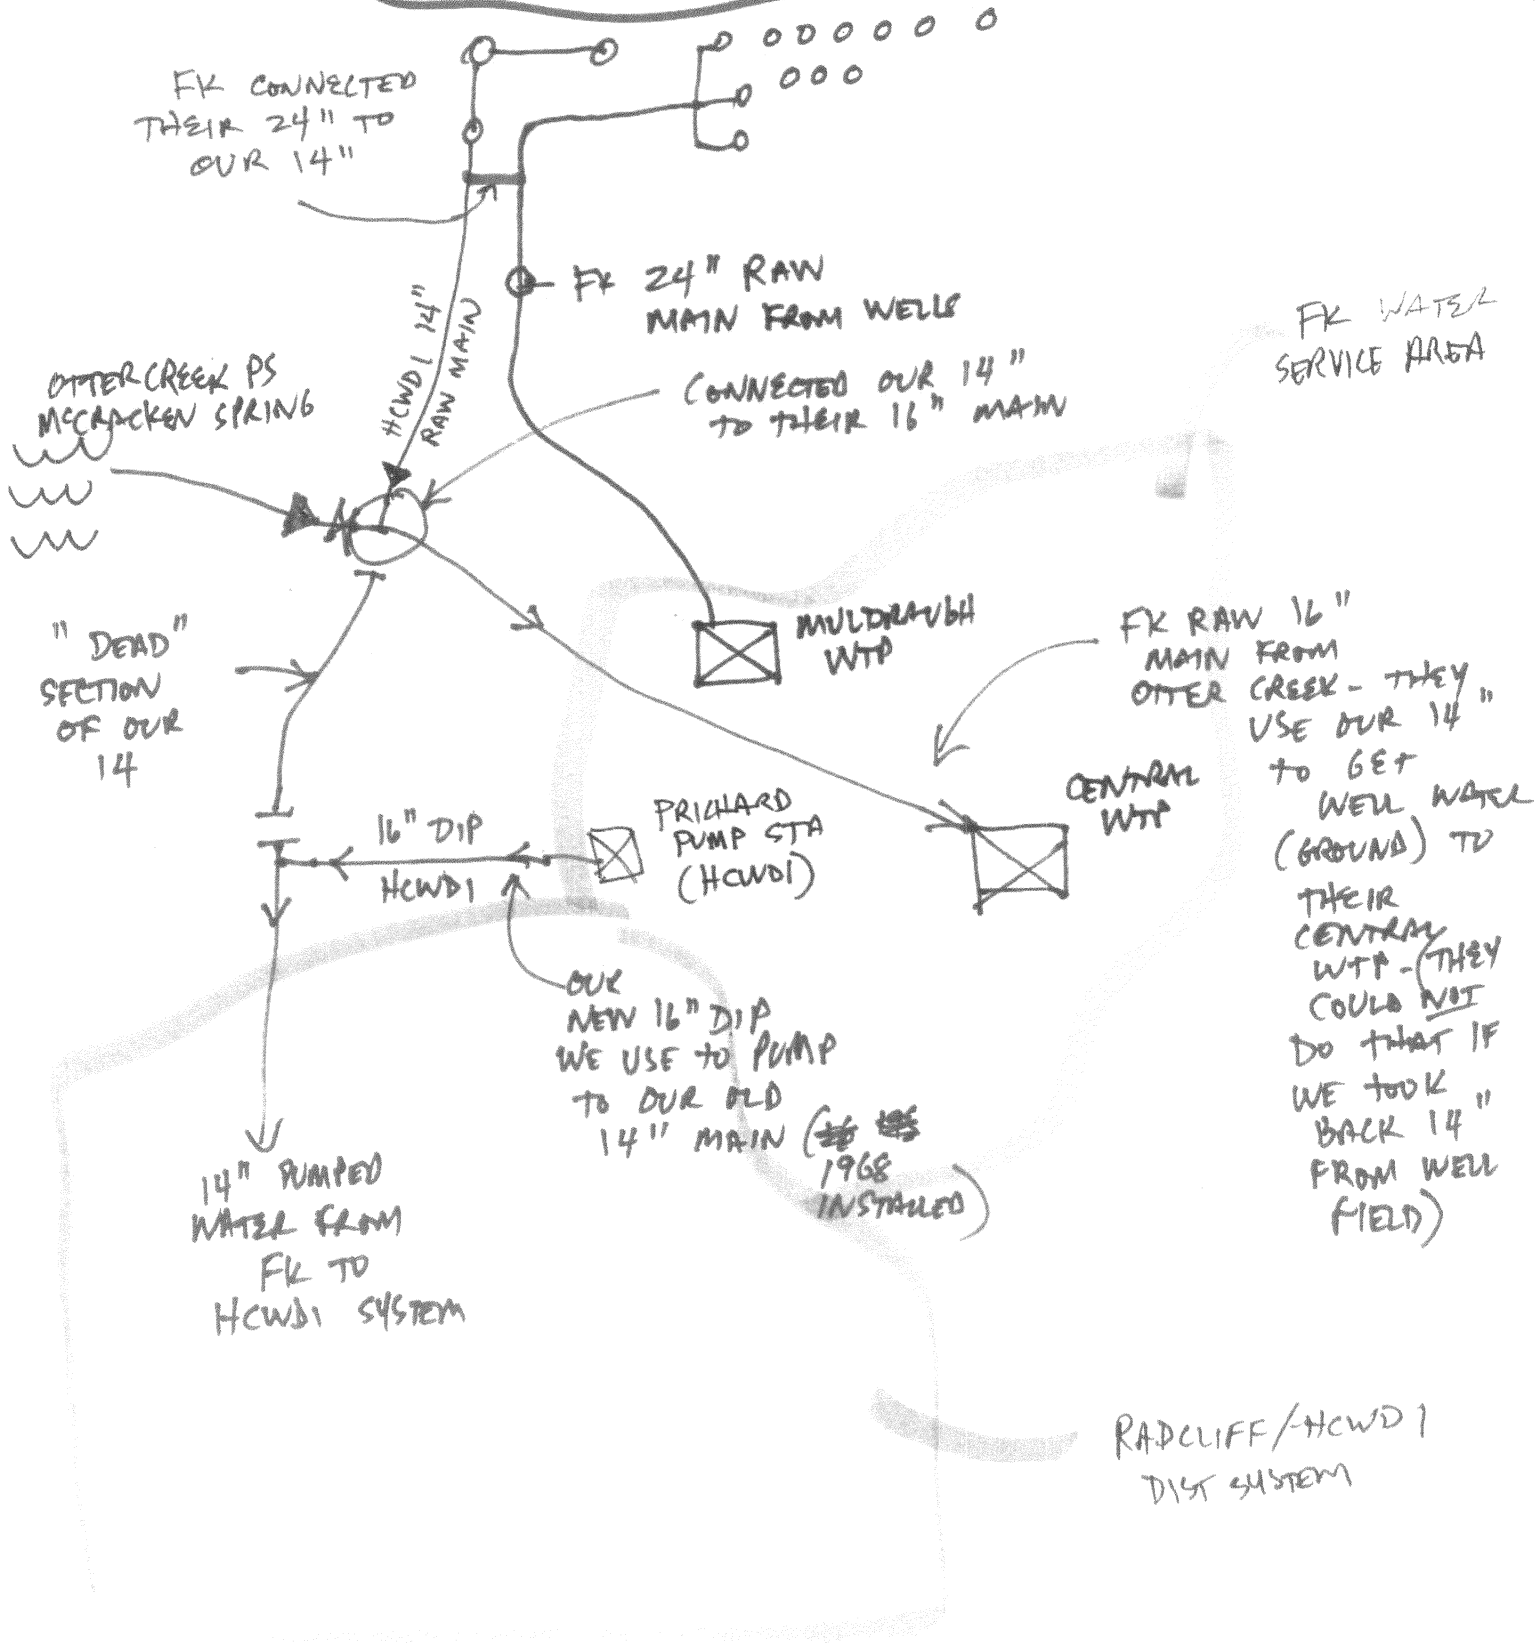 FK CONNECTED
THEIR 24" TO
OUR 14"
FK 24" RAW
MAIN FROM WELLS
HCWD1 14"
RAW MAIN
FK WATER
SERVICE AREA
OTTER CREEK PS
MCCRACKEN SPRING
CONNECTED OUR 14"
TO THEIR 16" MAIN
"DEAD"
SECTION
OF OUR
14
MULDRAUGH
WTP
FK RAW 16"
MAIN FROM
OTTER CREEK - THEY
USE OUR 14"
TO GET
WELL WATER
(GROUND) TO
THEIR
CENTRAL
WTP - (THEY
COULD NOT
DO THAT IF
WE TOOK
BACK 14"
FROM WELL
FIELD)
CENTRAL
WTP
16" DIP
HCWD1
PRICHARD
PUMP STA
(HCWD1)
OUR
NEW 16" DIP
WE USE TO PUMP
TO OUR OLD
14" MAIN (
1968
INSTALLED)
14" PUMPED
WATER FROM
FK TO
HCWD1 SYSTEM
RADCLIFF/HCWD1
DIST SYSTEM